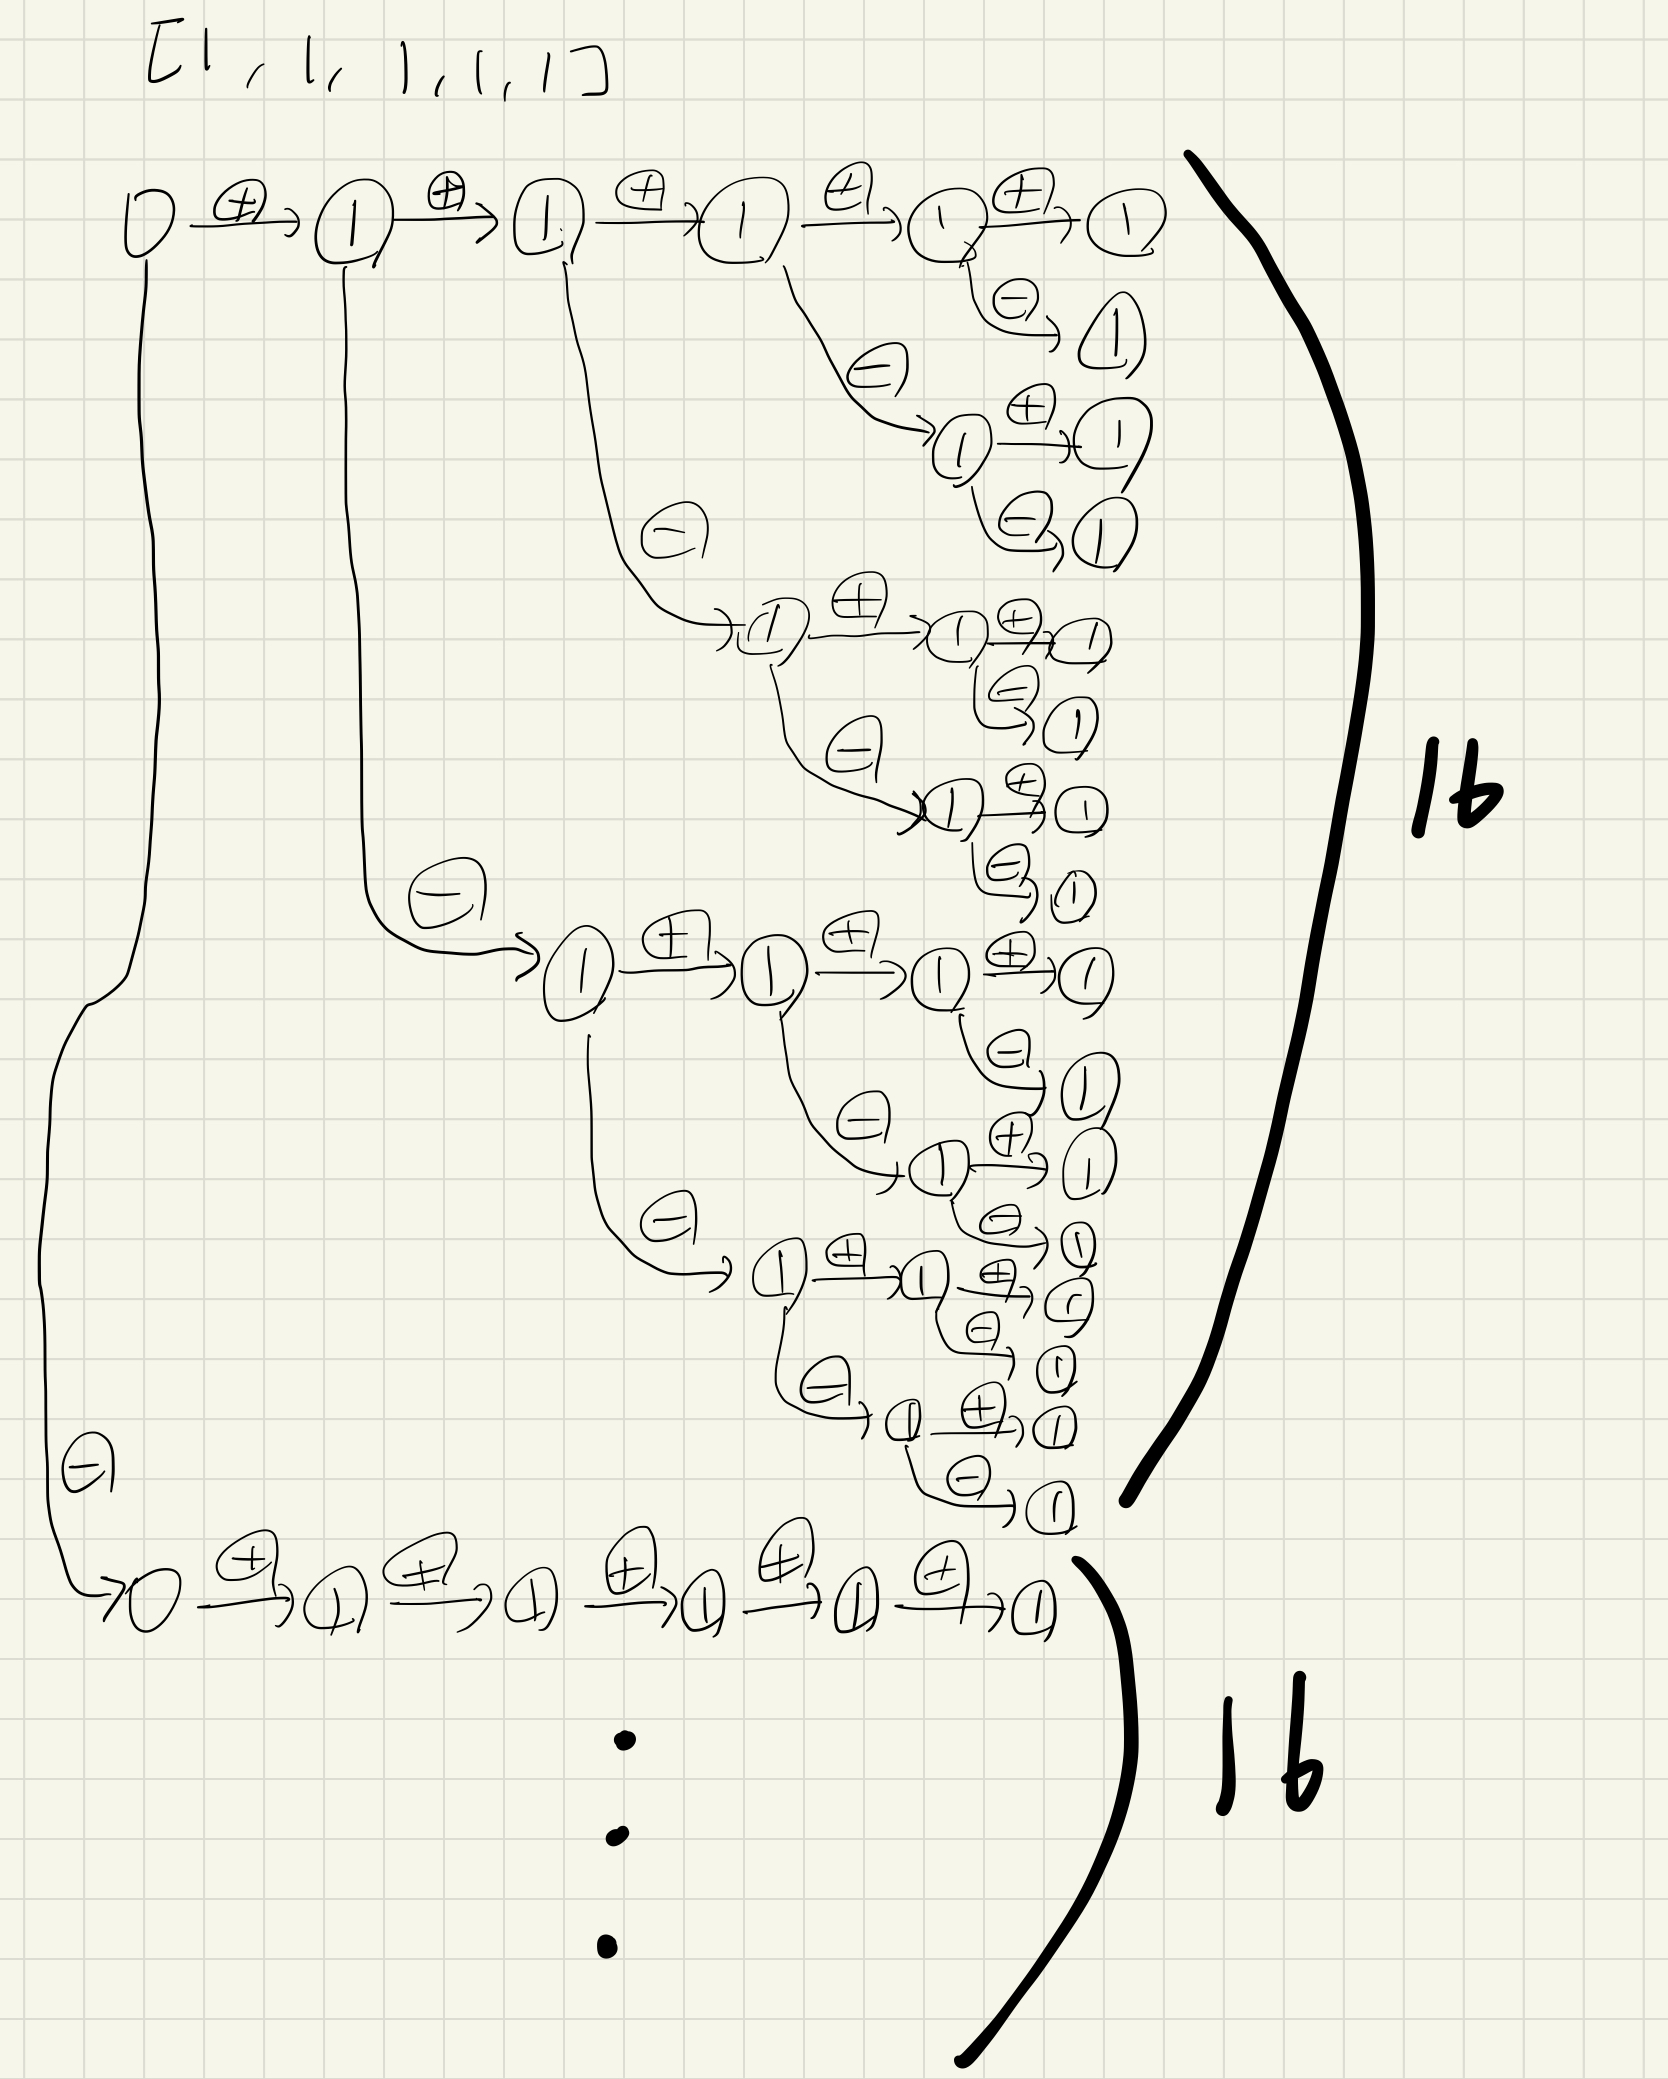 [1, 1, 1, 1, 1]
0 + 1 + 1 + 1 + 1 + 1
- 1
- 1 + 1
- 1
- 1 + 1 + 1
- 1
- 1 + 1
- 1
16
- 1 + 1 + 1 + 1
- 1
- 1 + 1
- 1
- 1 + 1 + 1
- 1
- 1 + 1
- 1
- 0 + 1 + 1 + 1 + 1 + 1
16